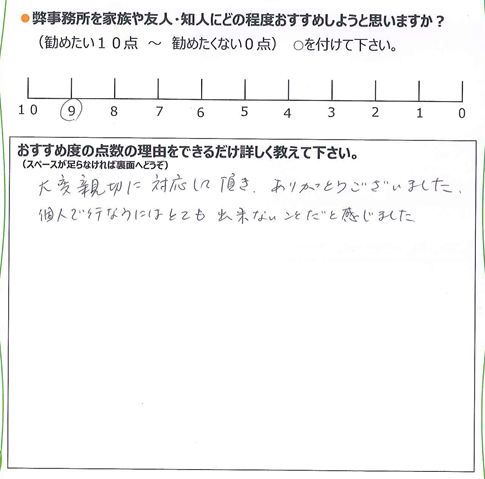 ●弊事務所を家族や友人・知人にどの程度おすすめしようと思いますか？
（勧めたい１０点 ～ 勧めたくない０点） ○を付けて下さい。
10 9 8 7 6 5 4 3 2 1 0
おすすめ度の点数の理由をできるだけ詳しく教えて下さい。
（スペースが足らなければ裏面へどうぞ）
大変親切に対応して頂き、ありがとうございました。
個人で行なうにはとても出来ないことだと感じました